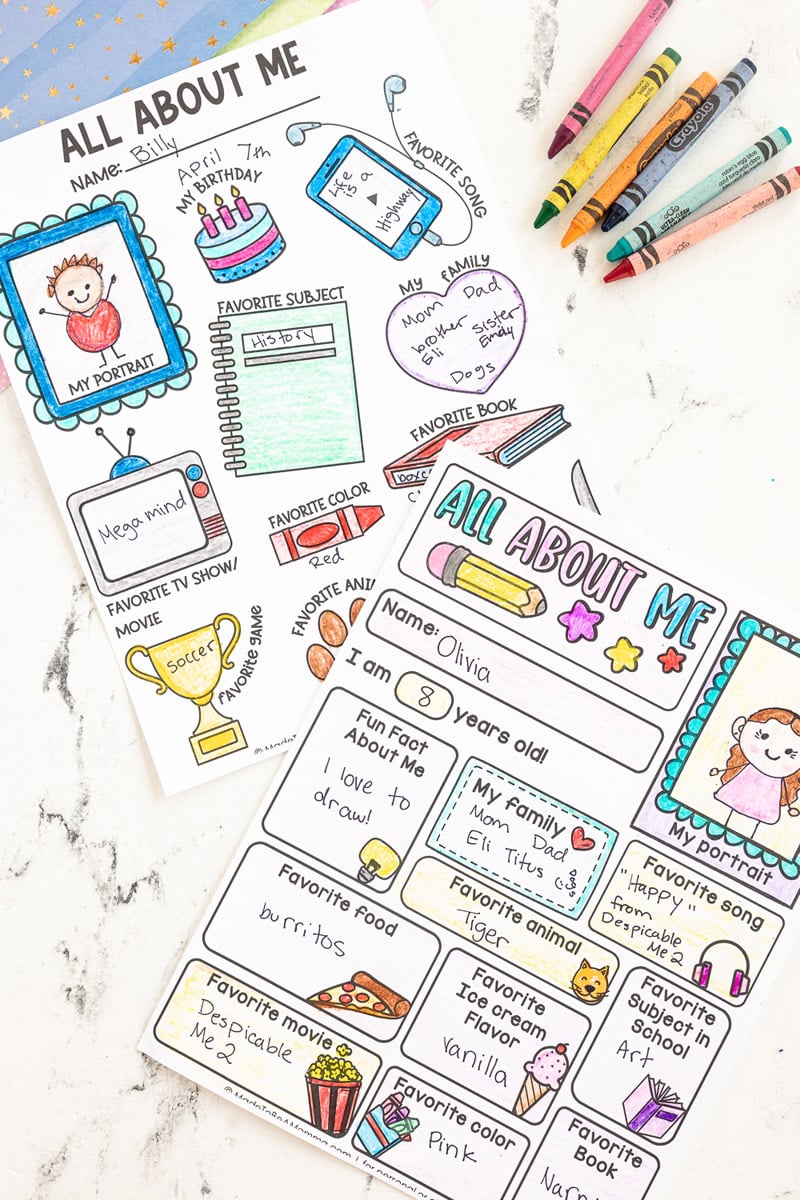 ALL ABOUT ME
NAME: Billy
April 7th
MY BIRTHDAY
Life
is a
Highway
FAVORITE SONG
MY PORTRAIT
FAVORITE SUBJECT
History
MY FAMILY
Mom Dad
brother sister
Eli Emily
Dogs
FAVORITE BOOK
Megamind
FAVORITE TV SHOW/
MOVIE
FAVORITE COLOR
Red
soccer
favorite game
FAVORITE ANI
ALL ABOUT ME
Name: Olivia
I am 8 years old!
My portrait
Fun Fact
About Me
I love to
draw!
My family
Mom Dad
Eli Titus
Dogs
Favorite song
"Happy"
from
Despicable
Me 2
Favorite food
burritos
Favorite animal
Tiger
Favorite movie
Despicable
Me 2
Favorite
Ice cream
Flavor
vanilla
Favorite
Subject in
School
Art
Favorite color
Pink
Favorite
Book
Narn
© MadeToBeAMomma.com | for personal
Crayola
ULTRA-CLEAN